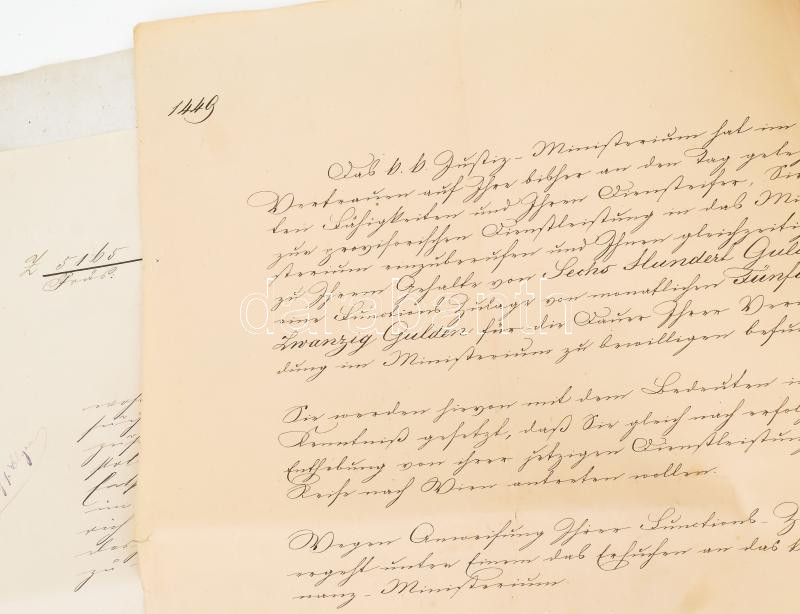 1449
Das k. k. Justiz-Ministerium hat im
Vertrauen auf Ihre bisher an den Tag geleg
ten Fähigkeiten und Ihren Diensteifer, Sie
zur provisorischen Dienstleistung in das Mi
sterium einzuberufen und Ihnen gleichzeiti
zu Ihrem Gehalte von Sechs Hundert Guld
eine Functions-Zulage von monatlichen Fünf
Zwanzig Gulden für die Dauer Ihrer Verw
dung im Ministerium zu bewilligen befu
Sie werden hievon mit dem Bedeuten i
Kenntniß gesetzt, daß Sie gleich nach erfol
Enthebung von ihrer jetzigen Dienstleistung
Reise nach Wien antreten wollen.
Wegen Anweisung Ihrer Functions-Z
ergeht unter Einem das Ersuchen an das k
nanz-Ministerium.
Z 5165
Präs.
im
zu
darabanth